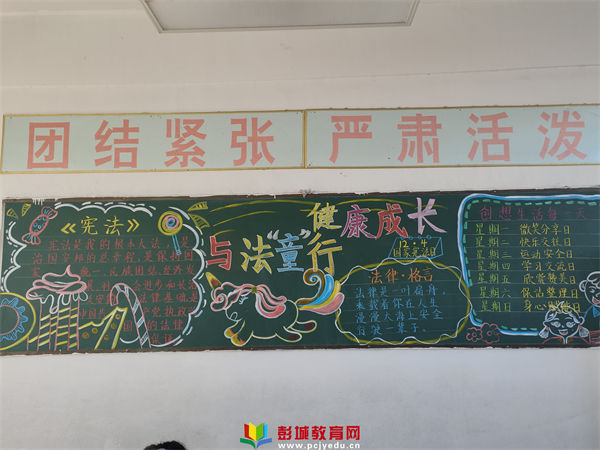 团结紧张 严肃活泼
《宪法》
宪法是我的根本大法,是
治国安邦的总章程,更保持国
与法"童"行
健康成长
12·4
国家宪法日
法律·格言
法律是一叶扁舟,
承载着你在人生
漫漫大海上安全
行驶一辈子.
创想生活每一天
星期一 微笑分享日
星期二 快乐交往日
星期三 运动安全日
星期四 学习交流日
星期五 欣赏赞美日
星期六 保洁整理日
星期日 身心
日
彭城教育网
www.pcjyedu.cn